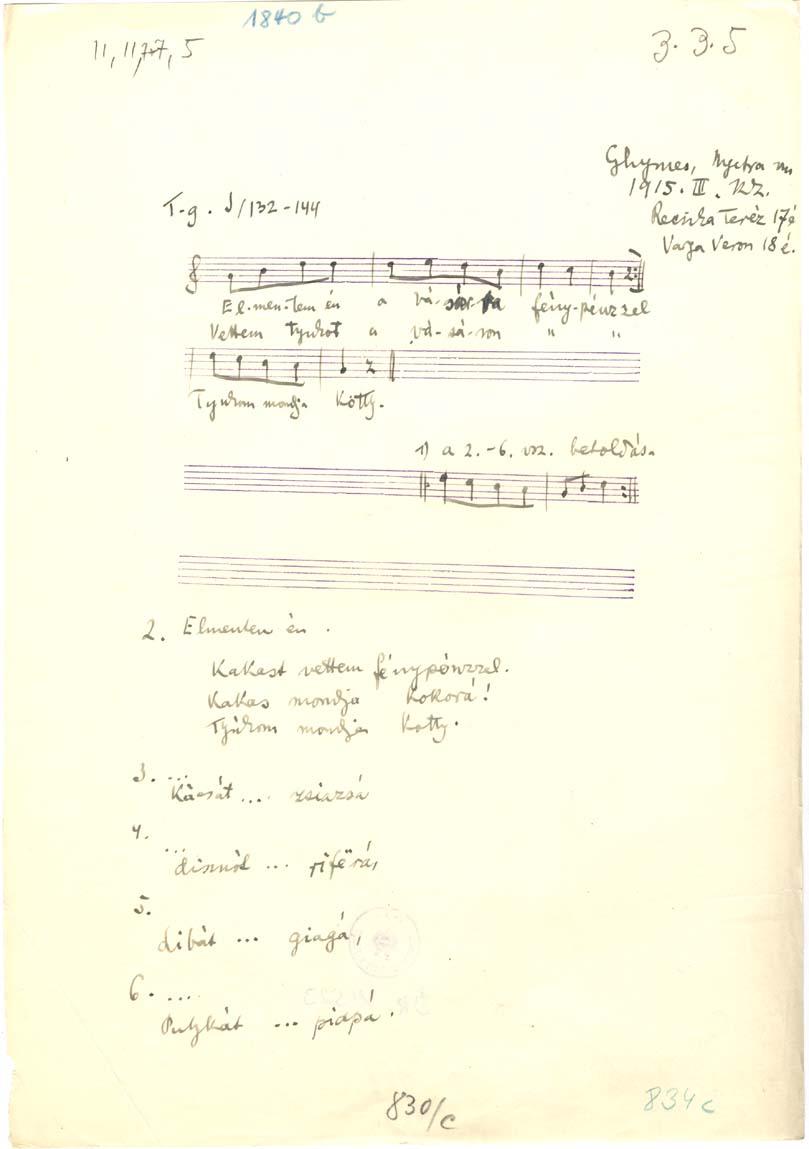 1840 b
11, 11, 7+7, 5
3. 3. 5
Ghymes, Nyitra m
1915. III. KZ.
T-g. ♩/132-144
Recska Teréz 17é
Varga Veron 18 é.
El-men-tem én a vá-sár-ra fény-pénzzel
Vettem tyukot a vá-sá-ron " "
Tyukom mondja Kotty.
1) a 2.-6. vsz. betoldás.
2. Elmentem én .
Kakast vettem fénypénzzel.
Kakas mondja kokorá!
Tyúkom mondja Kotty.
3. ...
Kácsát .... zsiazsá
4.
... disznót ... rifërá,
5.
libát ... giagá,
6. ...
Pulykát ... piapá.
830/c
834 c